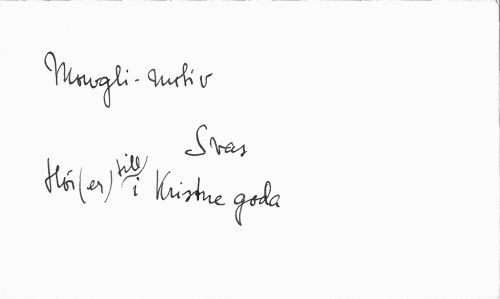 Mowgli-motiv
Svar
Hör(er) till i Kristne goda